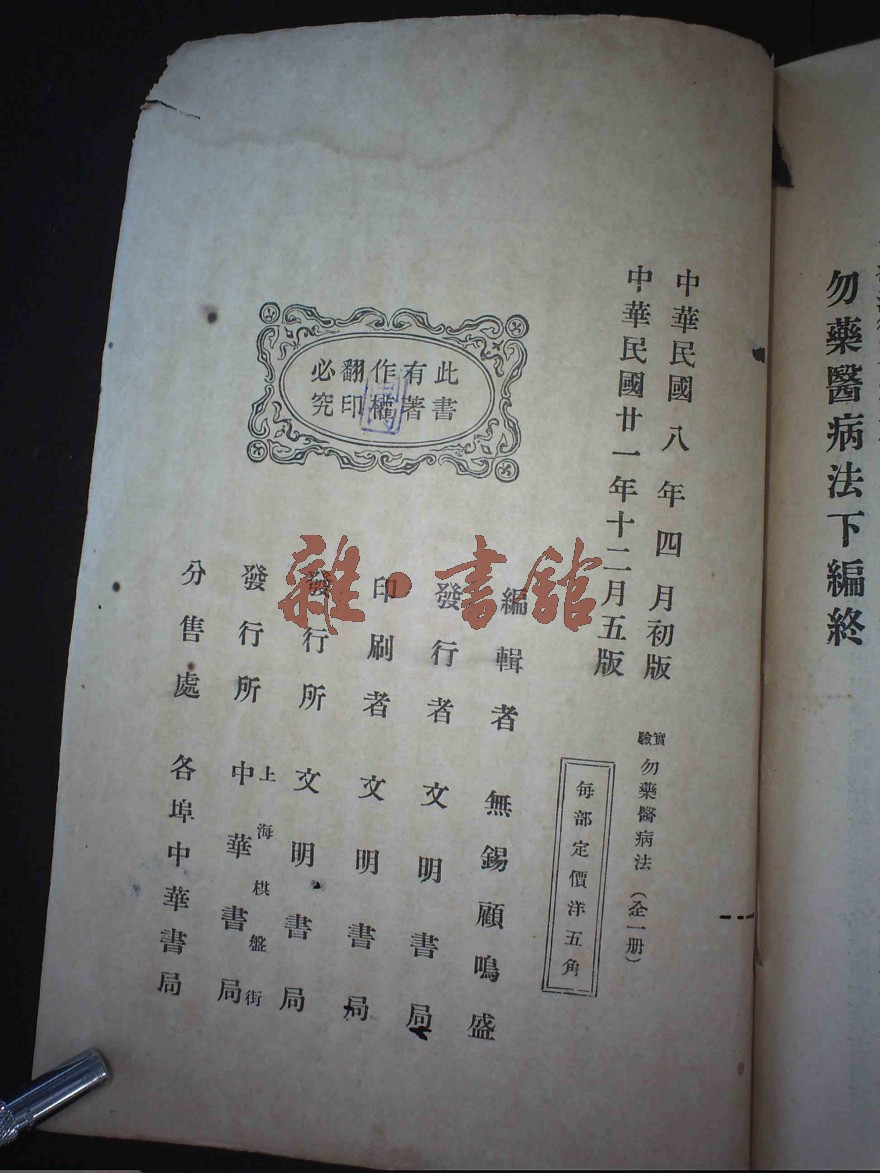 勿藥醫病法下編終
中華民國八年四月初版
中華民國廿一年十二月五版
實驗勿藥醫病法（全一册）
每部定價洋五角
此書
有著
作權
翻印
必究
編輯者 無錫顧鳴盛
發行者 文明書局
印刷者 文明書局
發行所 文明書局
上海棋盤街
發行所 中華書局
分售處 各埠中華書局
雜·書館